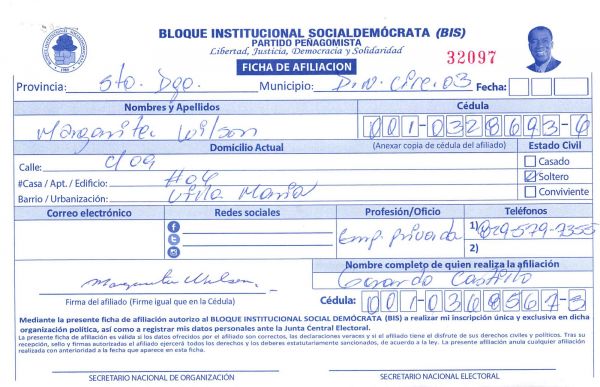 BLOQUE INSTITUCIONAL SOCIALDEMÓCRATA (BIS)
PARTIDO PEÑAGOMISTA
Libertad, Justicia, Democracia y Solidaridad
FICHA DE AFILIACION
32097
Provincia: Sto. Dgo. Municipio: D.N. Circ. 03 Fecha:
Nombres y Apellidos Cédula
Margarita Wilson 001-0328693-6
Domicilio Actual (Anexar copia de cédula del afiliado) Estado Civil
Calle: C/ 09 Casado
#Casa / Apt. / Edificio: #04 Soltero
Barrio / Urbanización: Villa Maria Conviviente
Correo electrónico Redes sociales Profesión/Oficio Teléfonos
Emp. privada 1) 829-579-7355
2)
Nombre completo de quien realiza la afiliación
Gerardo Castillo
Firma del afiliado (Firme igual que en la Cédula) Cédula: 001-0368567-3
Mediante la presente ficha de afiliación autorizo al BLOQUE INSTITUCIONAL SOCIAL DEMÓCRATA (BIS) a realizar mi inscripción única y exclusiva en dicha
organización política, así como a registrar mis datos personales ante la Junta Central Electoral.
La presente ficha de afiliación es válida si los datos ofrecidos por el afiliado son correctos, las declaraciones veraces y si el afiliado tiene el disfrute de sus derechos civiles y políticos. Tras su
recepción, sello y firmas autorizadas el afiliado ejercerá todos los derechos y los deberes estatutariamente sancionados, de acuerdo a la ley. La presente afiliación anula cualquier afiliación
realizada con anterioridad a la fecha que aparece en esta ficha.
SECRETARIO NACIONAL DE ORGANIZACIÓN SECRETARIO NACIONAL ELECTORAL